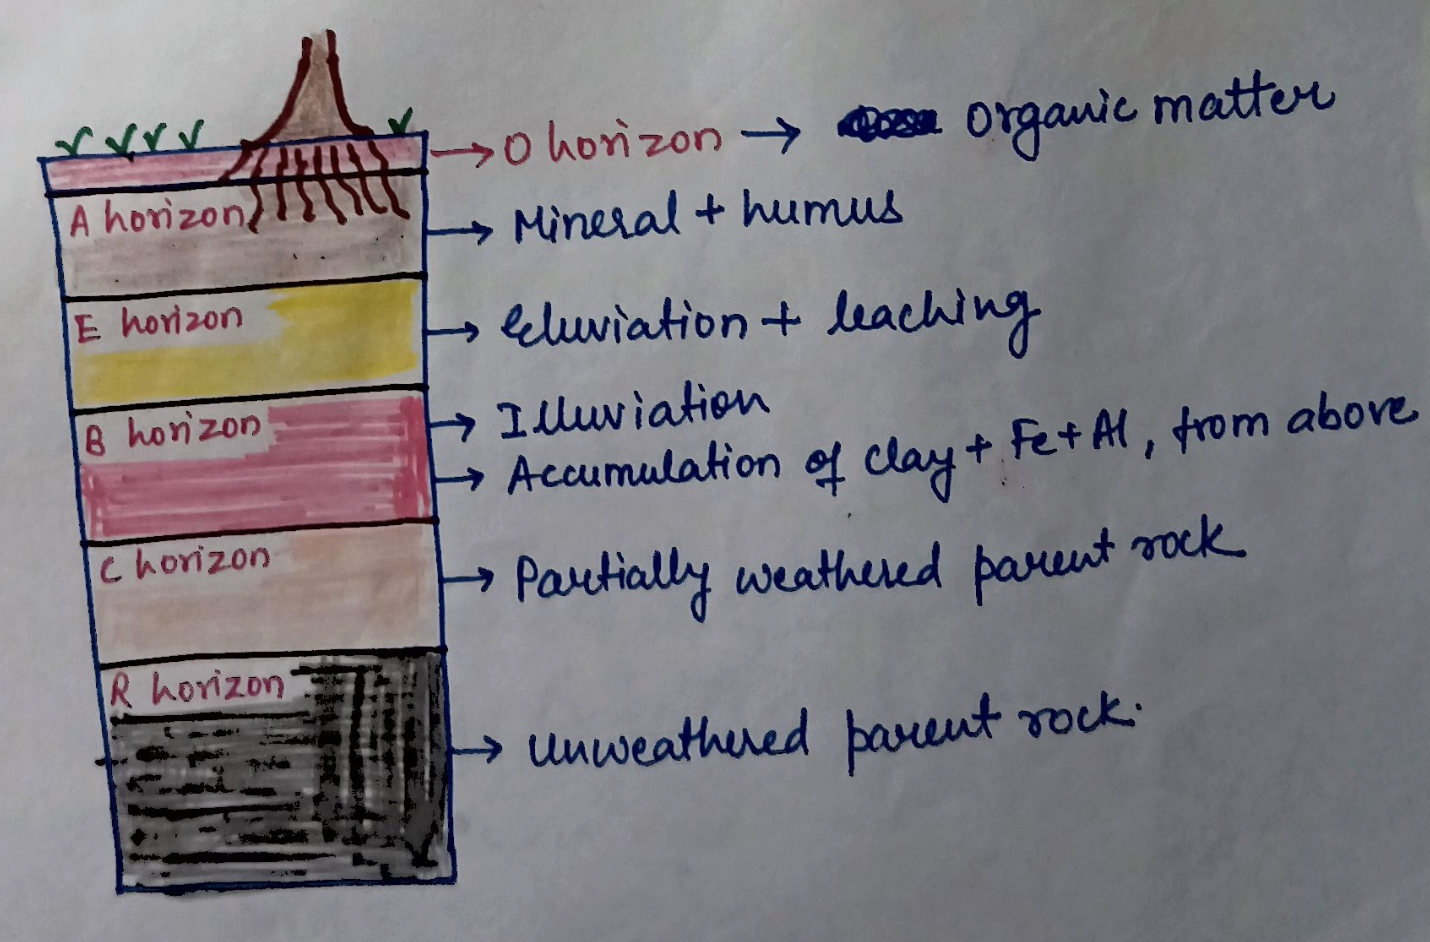 O horizon → organic matter
A horizon → Mineral + humus
E horizon → Eluviation + leaching
B horizon → Illuviation
→ Accumulation of clay + Fe + Al, from above
C horizon → Partially weathered parent rock
R horizon → Unweathered parent rock.